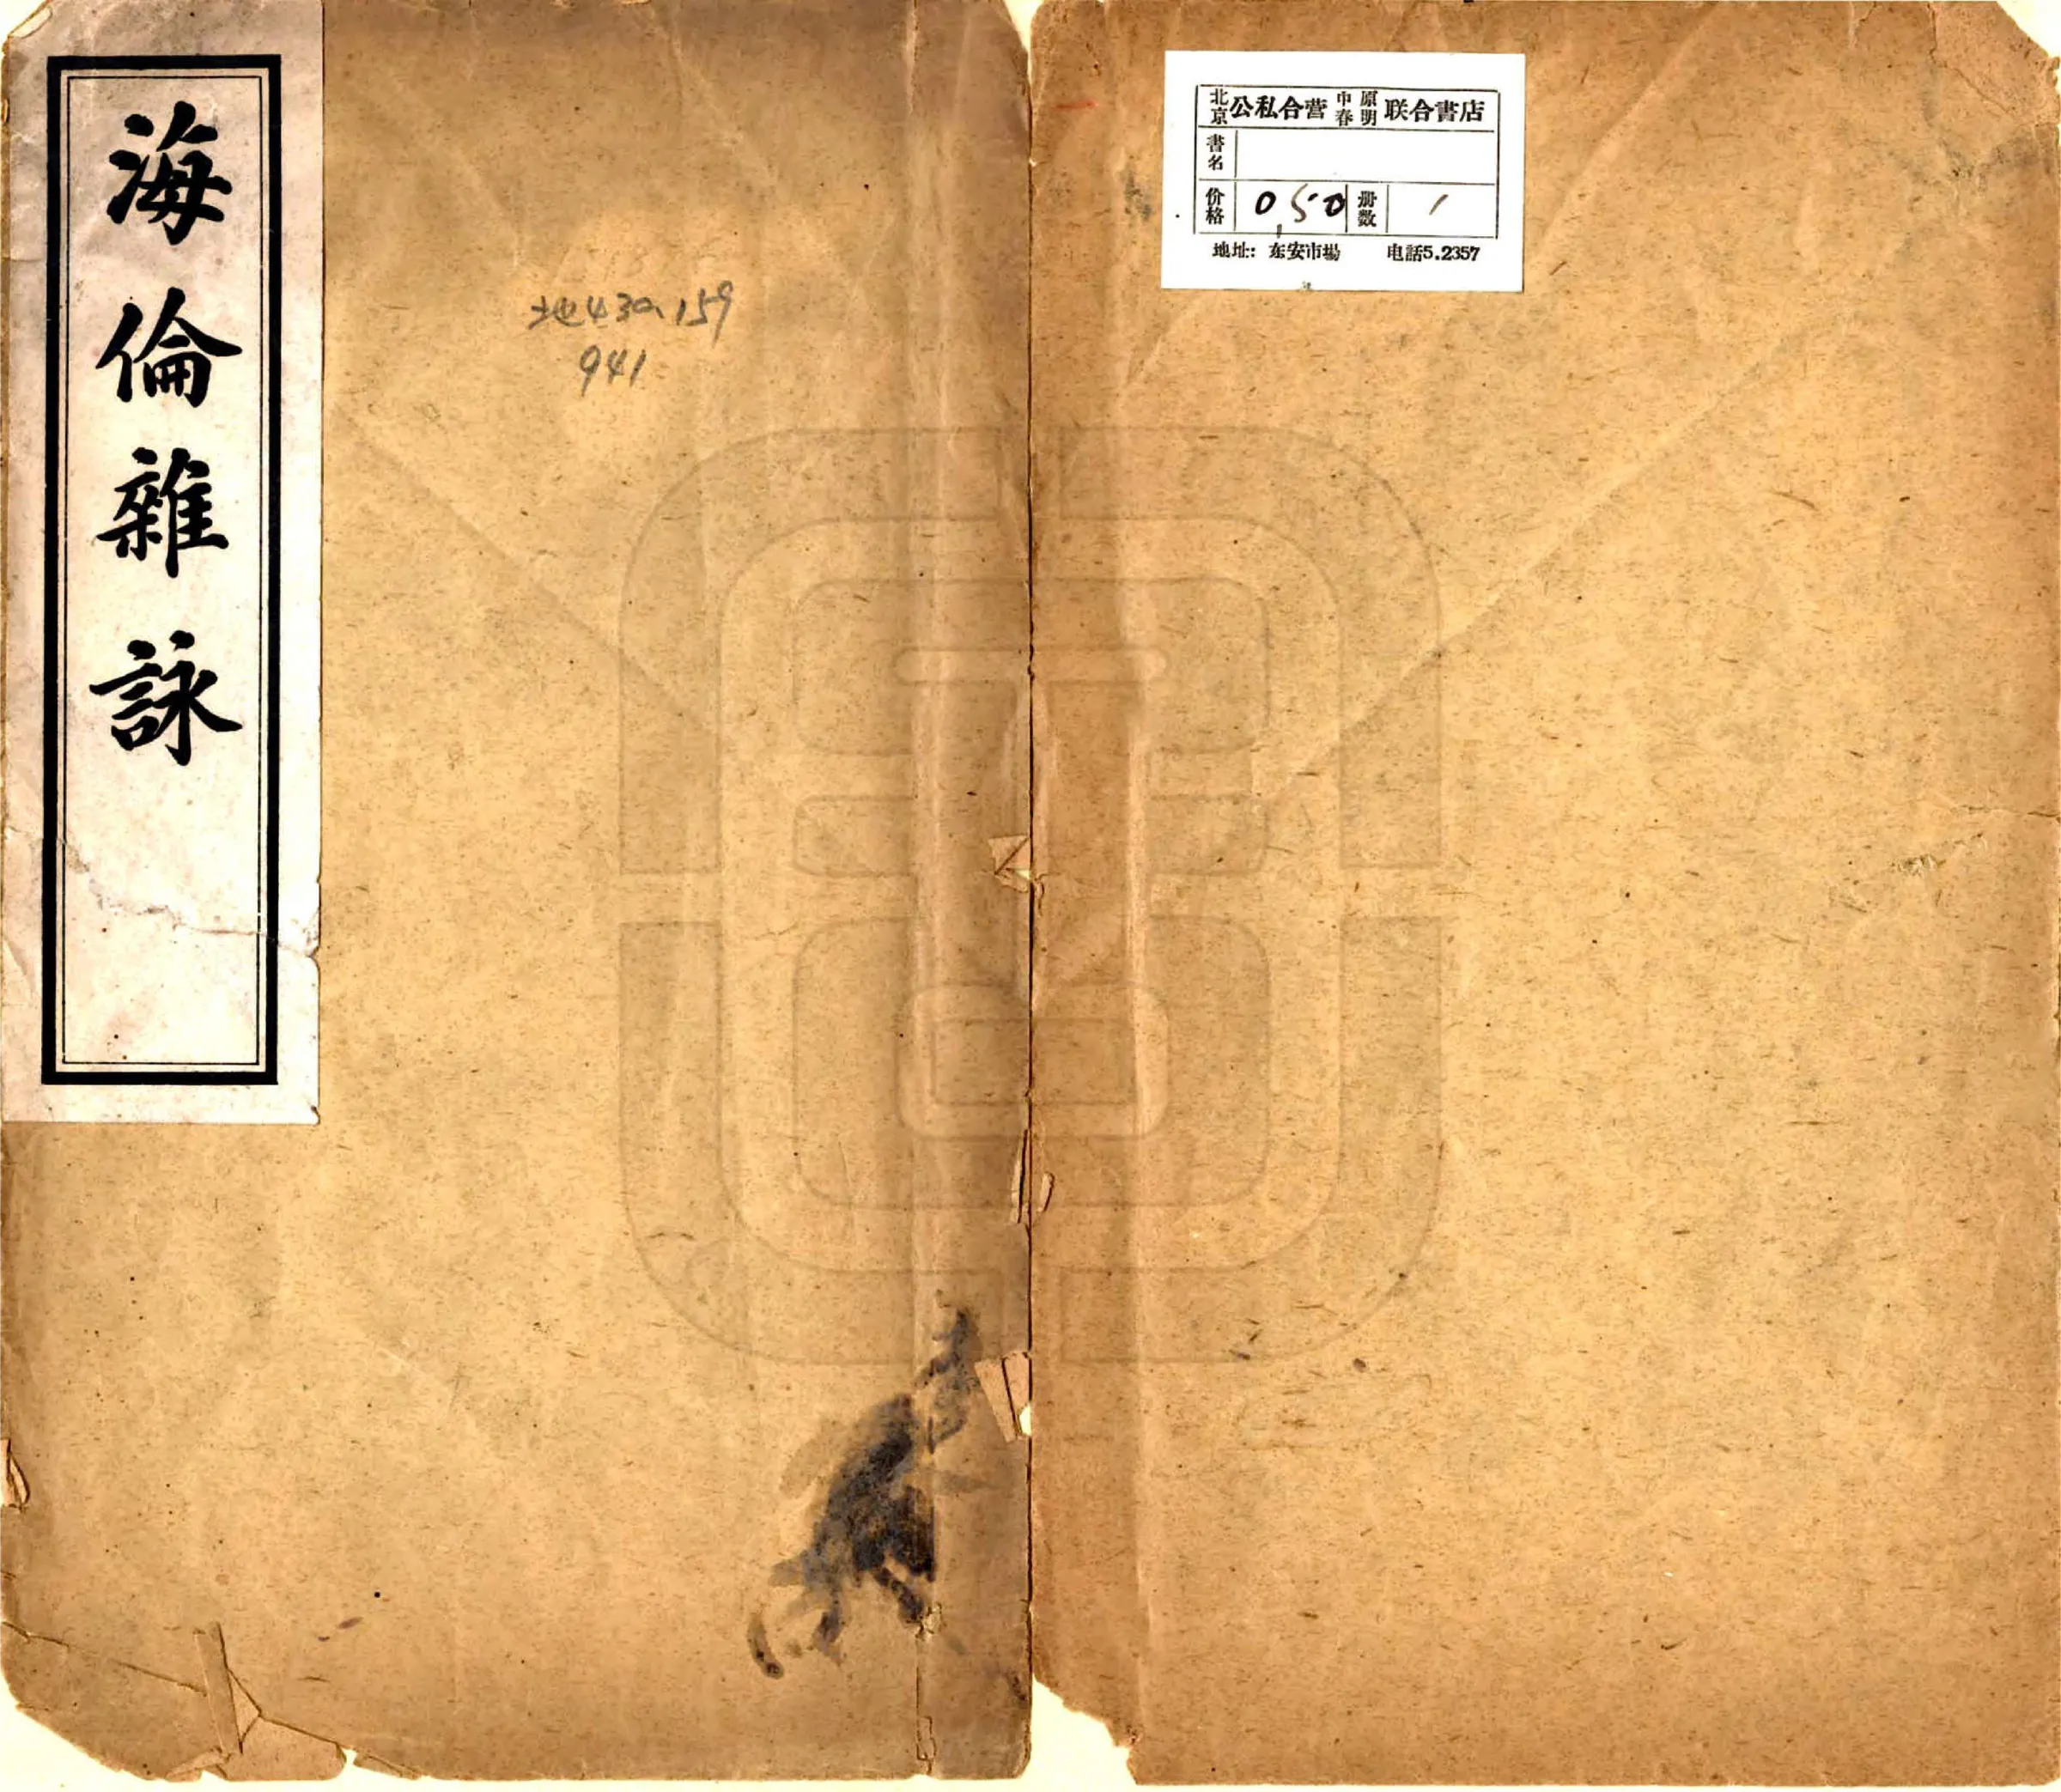 海倫雜詠
地430.159
941
北京公私合营中原春明联合書店
書名
价格 0.50 册数 1
地址：东安市場 电話5.2357